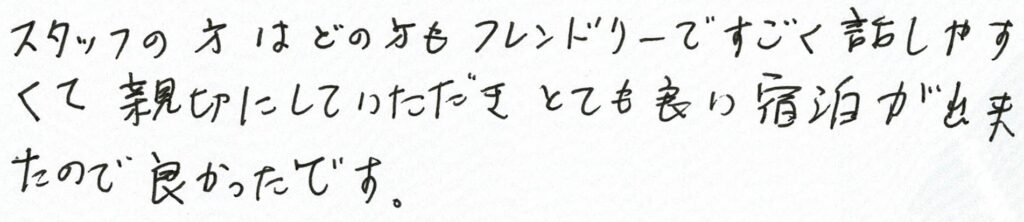 スタッフの方はどの方もフレンドリーですごく話しやす
くて親切にしていただきとても良い宿泊が出来
たので良かったです。